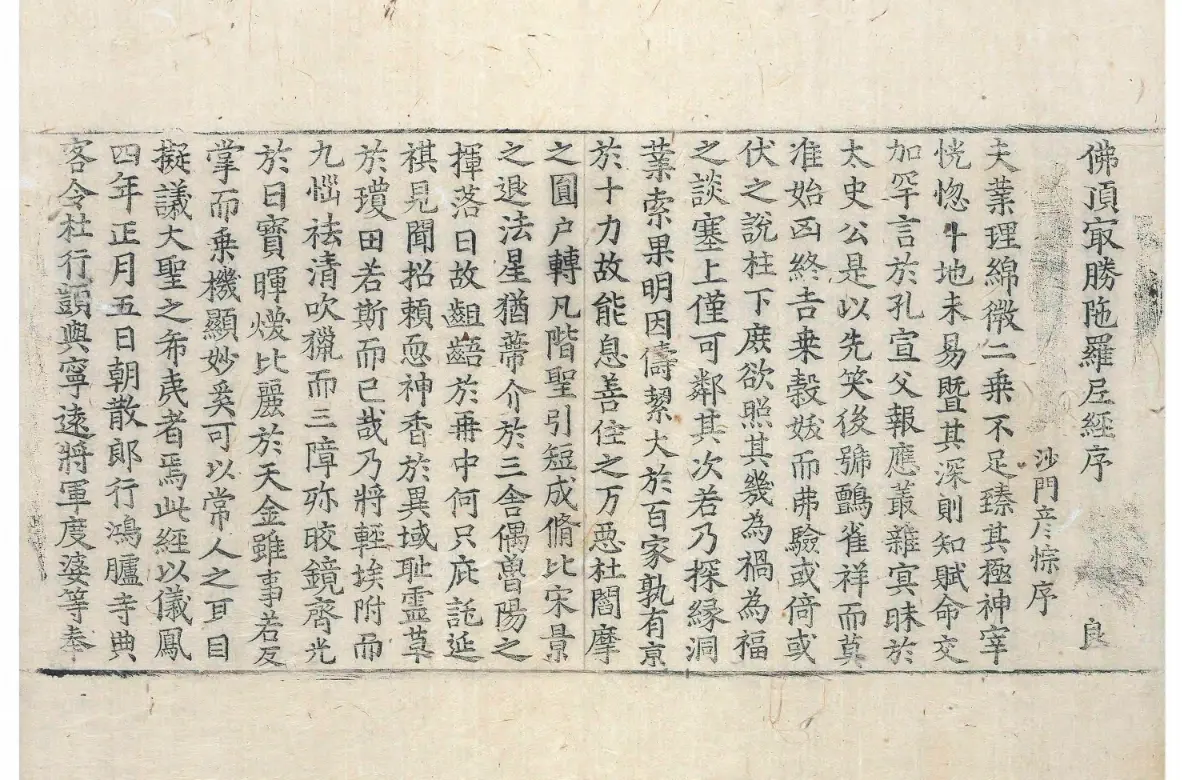 佛頂冣勝陁羅尼經序 良
沙門彦悰序
夫業理綿微二乗不足臻其極神宰
恍惚十地未易曁其深則知賦命交
加罕言於孔宣父報應叢雜寘昧於
太史公是以先笑後號鸇雀祥而莫
准始凶終吉桒穀妖而弗驗或倚或
伏之說柱下庻欲照其幾為禍為福
之談塞上僅可鄰其次若乃探縁洞
業索果明因儔絜大於百家孰有京
於十力故能息善住之万惡杜閻摩
之圓户轉凡階聖引短成脩比宋景
之退法星猶蔕介於三舎偶魯陽之
揮落日故齟齬於再中何只庇託延
祺見聞招賴愈神香於異域耻霊草
於瓊田若斯而已哉乃將輕埃附而
九惱祛清吹獵而三障弥晈鏡齊光
於日寶暉煥比麗於天金雖事若反
掌而乗機顯妙奚可以常人之耳目
擬議大聖之希夷者焉此經以儀鳳
四年正月五日朝散郎行鴻臚寺典
客令杜行顗與寧遠將軍度婆等奉